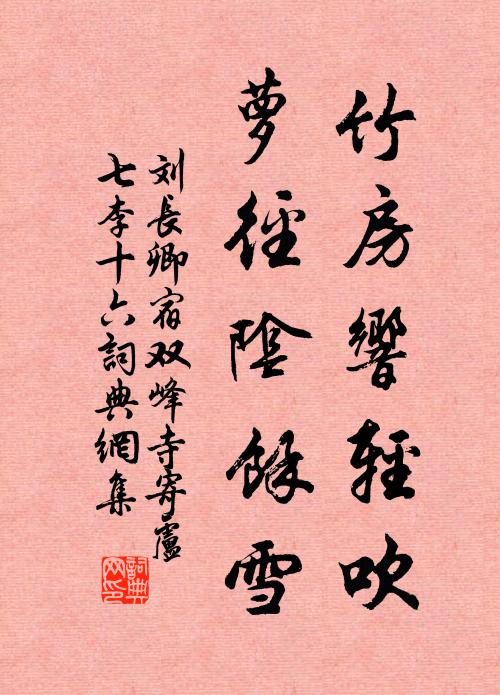 竹房響輕吹
萝徑陰餘雪
刘長卿宿双峰寺寄盧
七李十六詞典網集
詞典
网印